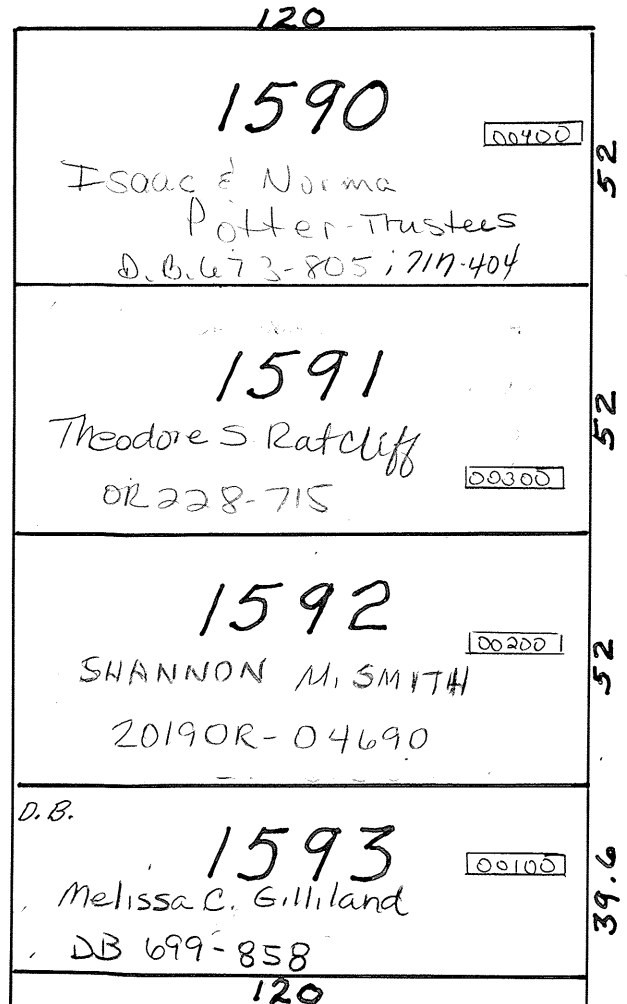 120
1590
00400
52
Isaac & Norma
Potter-Trustees
D.B.673-805; 717-404
1591
52
Theodore S Ratcliff
00300
OR228-715
1592
00200
52
SHANNON M. SMITH
2019OR-04690
D.B.
1593
00100
39.6
Melissa C. Gilliland
DB 699-858
120